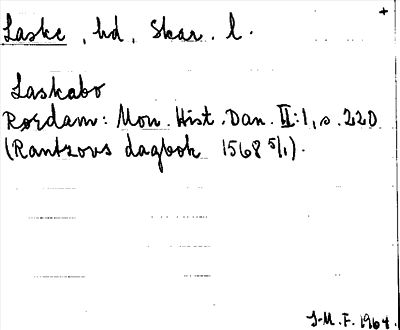 +
Laske, hd, Skar. l.
Laskabo
Rørdam: Mon. Hist. Dan. II:1, s. 220
(Rantzovs dagbok 1568 5/1).
J-M. F. 1964.